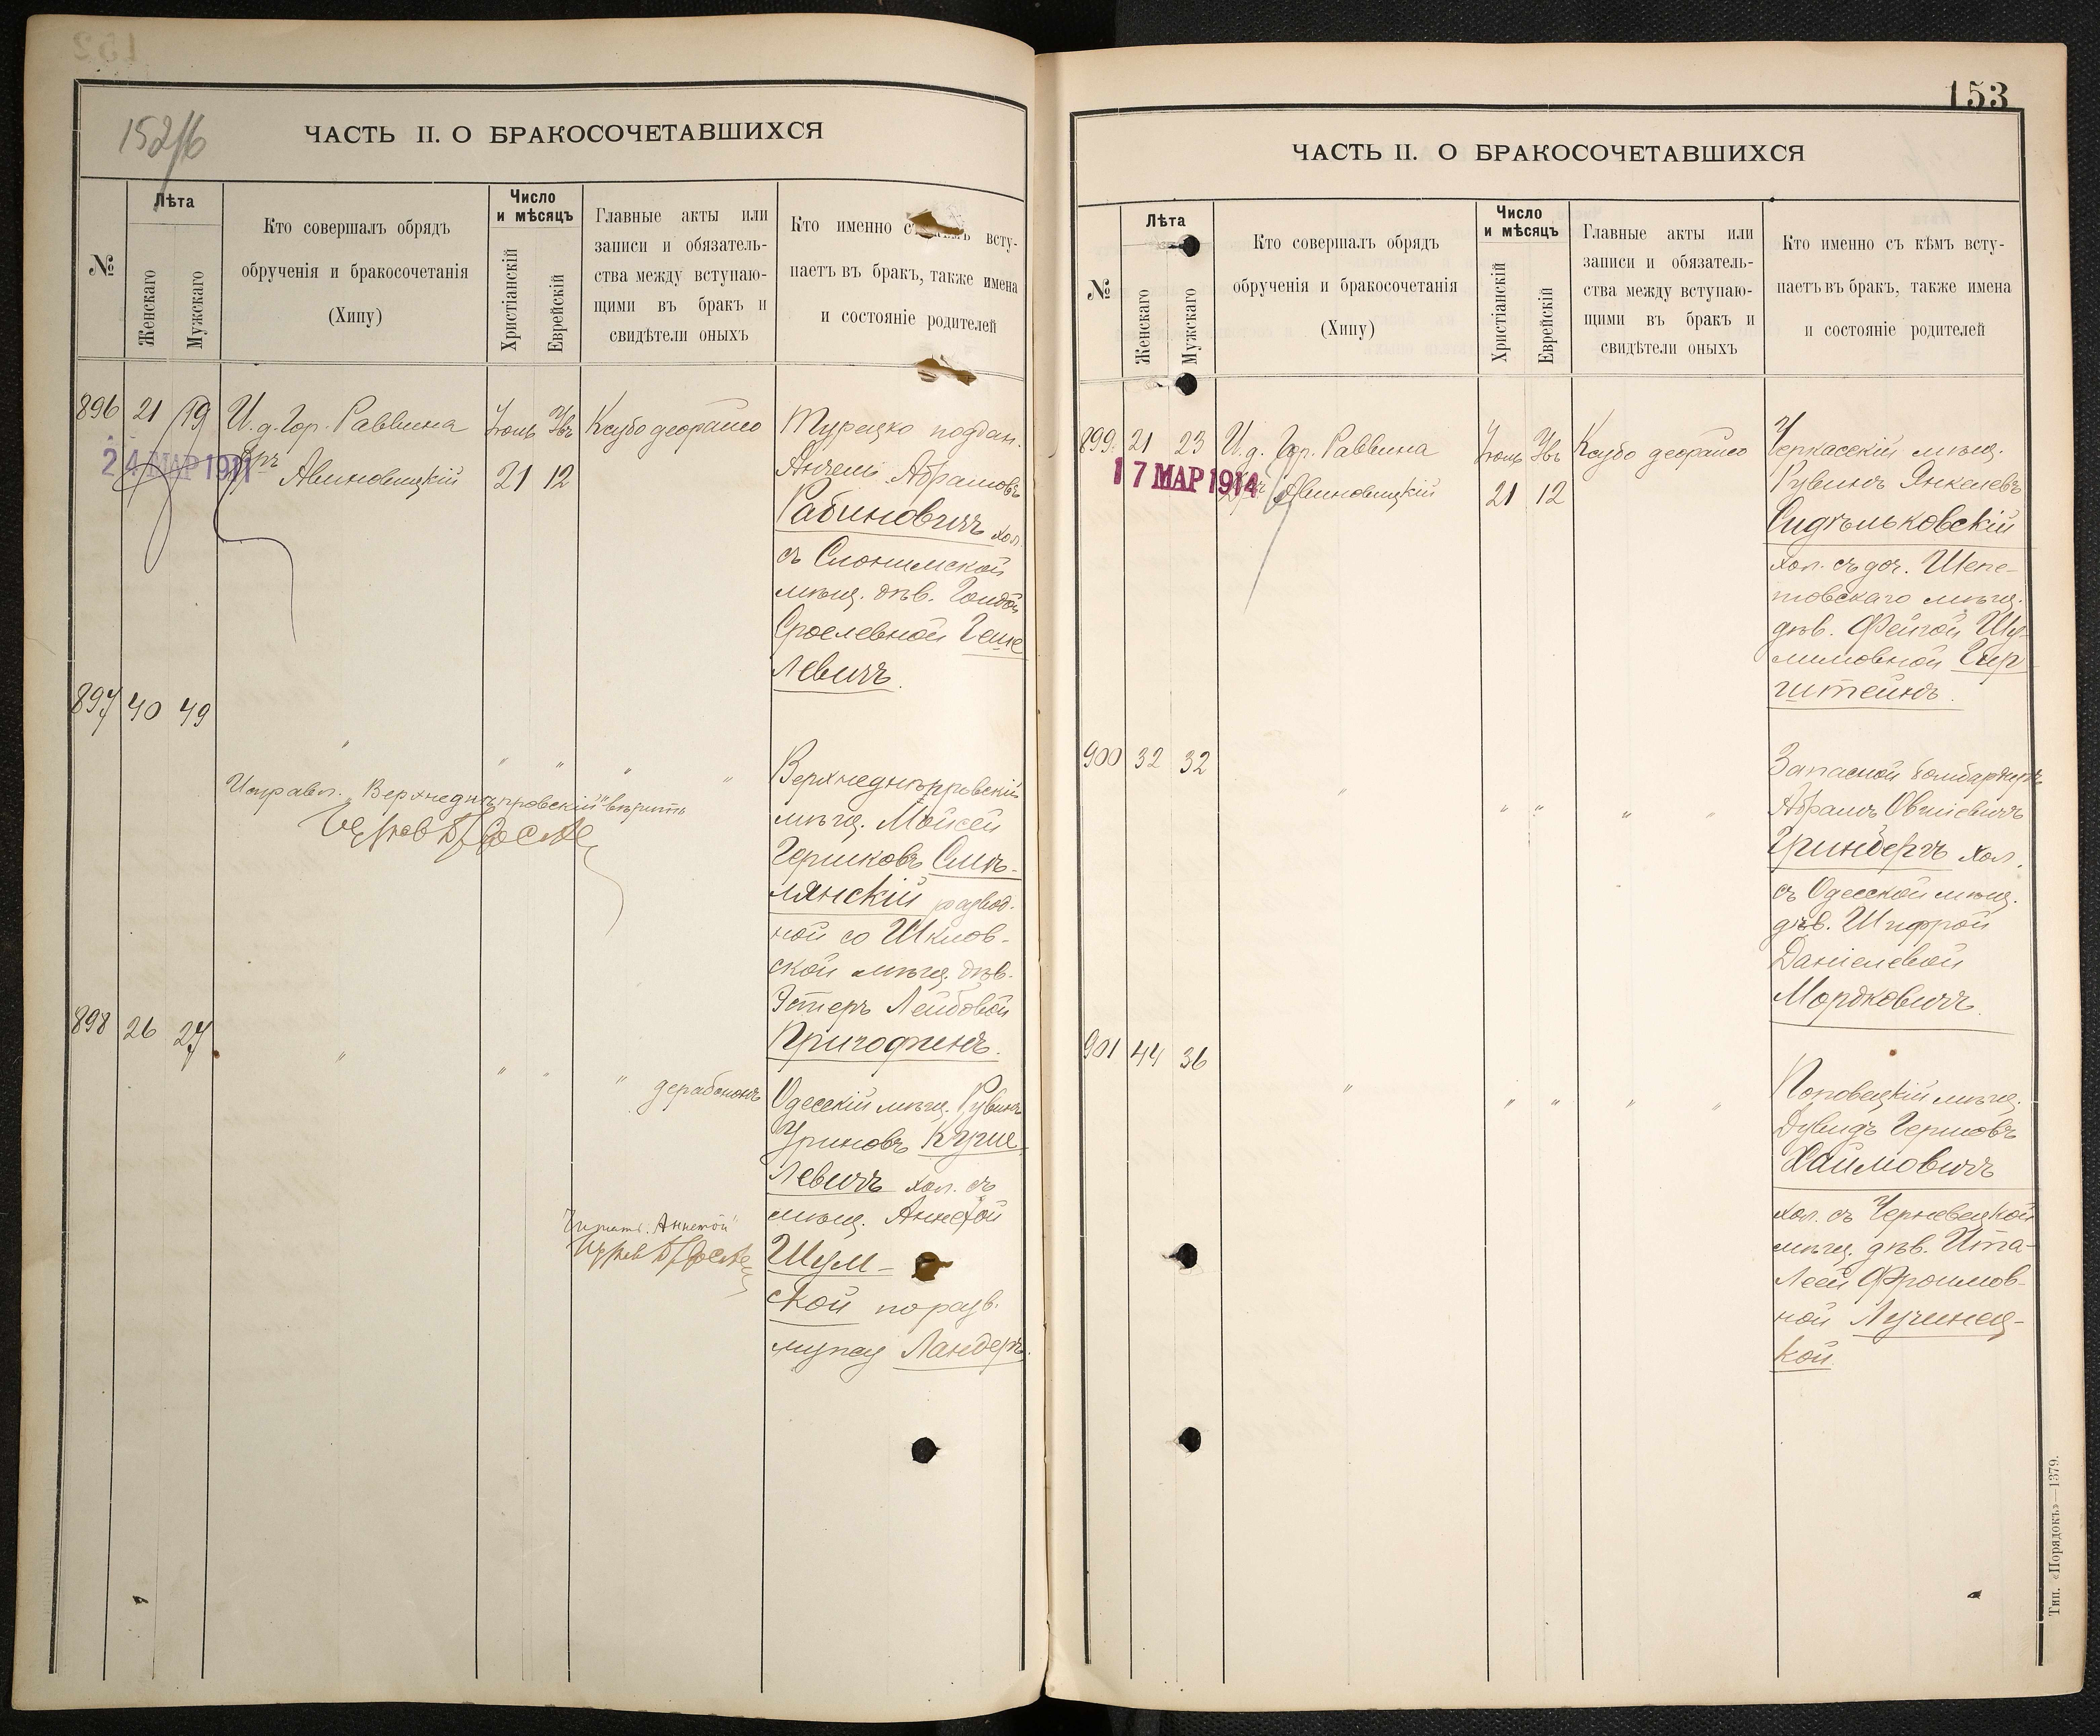 152/б
ЧАСТЬ II. О БРАКОСОЧЕТАВШИХСЯ
№
Лѣта
Женскаго
Мужскаго
Кто совершалъ обрядъ
обрученія и бракосочетанія
(Хипу)
Число
и мѣсяцъ
Христіанскій
Еврейскій
Главные акты или
записи и обязатель-
ства между вступаю-
щими въ бракъ и
свидѣтели оныхъ
Кто именно съ кѣмъ всту-
паетъ въ бракъ, также имена
и состояніе родителей
896 21 19 И. д. Гор. Раввина Іюнь Ӏвъ Ксубо деорайсо
24 МАР 1911
Д-ръ Авиновицкій 21 12
Турецко поддан.
Анчель Абрамовъ
Рабиновичъ хол.
съ Слонимской
мѣщ. дѣв. Голдой
Сроелевной Геше
левичъ.
897 40 49 " " " " "
Исправл. „Верхнеднѣпровскій" вѣрить
Верхнеднѣпровскій
мѣщ. Мойсей
Гершковъ Смѣ-
лянскій развод-
ной со Шклов-
ской мѣщ. дѣв.
Эстеръ Лейбовой
Пригожинъ.
898 26 27 " " " " дерабононъ
Одесскій мѣщ. Рувинъ
Уриновъ Куше
левичъ хол. съ
мѣщ. Аннетой
Шум-
ской по разв.
мужу Ландеръ.
Читать: „Аннетой"
153
ЧАСТЬ II. О БРАКОСОЧЕТАВШИХСЯ
№
Лѣта
Женскаго
Мужскаго
Кто совершалъ обрядъ
обрученія и бракосочетанія
(Хипу)
Число
и мѣсяцъ
Христіанскій
Еврейскій
Главные акты или
записи и обязатель-
ства между вступаю-
щими въ бракъ и
свидѣтели оныхъ
Кто именно съ кѣмъ всту-
паетъ въ бракъ, также имена
и состояніе родителей
899. 21 23 И. д. Гор. Раввина Іюнь Ӏвъ Ксубо деорайсо
17 МАР 1914
Д-ръ Авиновицкій 21 12
Черкасскій мѣщ.
Рувинъ Янкелевъ
Сидѣльковскій
хол. съ доч. Шепе-
товскаго мѣщ.
дѣв. Фейгой Шу-
лимовной Гир
штейнъ.
900 32 32 " " " " "
Запасной бомбардиръ
Абрамъ Овшіевичъ
Гринбергъ хол.
съ Одесской мѣщ.
дѣв. Шифрой
Даніелевой
Мордковичъ.
901 44 36 " " " " "
Поповецкій мѣщ.
Дувидъ Гершовъ
Хаимовичъ
хол. съ Черневецкой
мѣщ. дѣв. Ита-
Леей Фроимов-
ной Лучинец-
кой.
Тип. «Порядокъ»—1379.